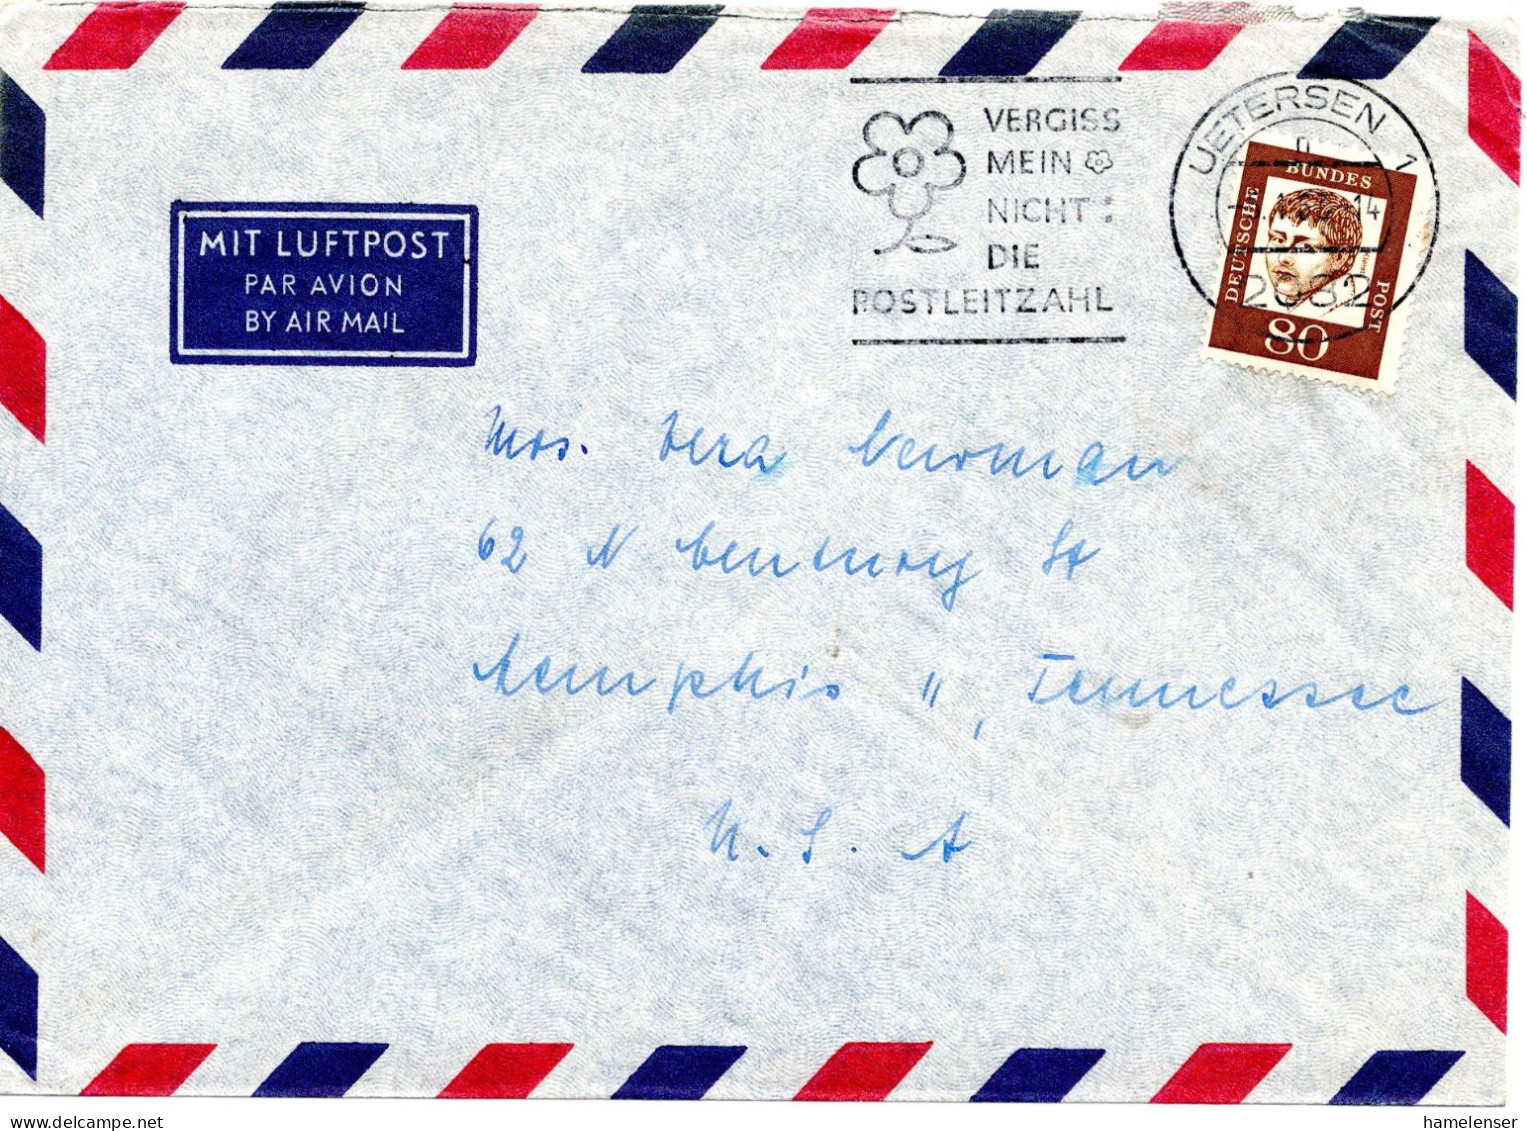 VERGISS
MEIN
NICHT:
DIE
POSTLEITZAHL
UETERSEN 1
14
2082
DEUTSCHE BUNDES POST
80
MIT LUFTPOST
PAR AVION
BY AIR MAIL
Mrs. Vera Newman
62 N Century St
Memphis 11, Tennessee
U. S. A
hamelenser